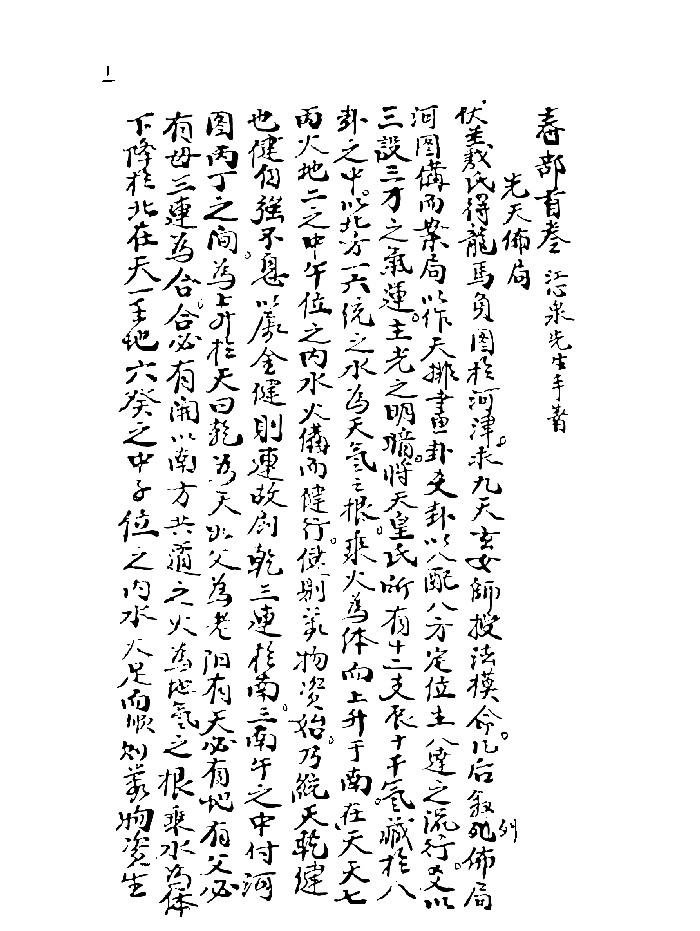 1
春部首卷 江心泉先生手書
先天佈局
伏羲氏得龍馬負圖於河津。求九天玄女師授法模令。凡后叙列佈局
河圖備而業局以作天排畫卦爻卦以八配八方定位主八達之流行。又以
三設三才之氣運。主光之明暗。將天皇氏所有十二支辰十干。氣藏於八
卦之中。以北方一六統之水為天氣之根。乘火為体而上升于南在天天七
丙火地二之中午位之内水火備而健行。健則萬物資始。乃統天乾健
也健自強不息以屬金健則連故剖乾三連於南。三南午之中付河
图丙丁之间為上升於天曰乾為天以父為老阳有天必有地有父必
有母三連為合。合必有開以南方共通之火為地氣之根乘水為体
下降於北在天一壬地六癸之中子位之内水火足而順则萬物資生